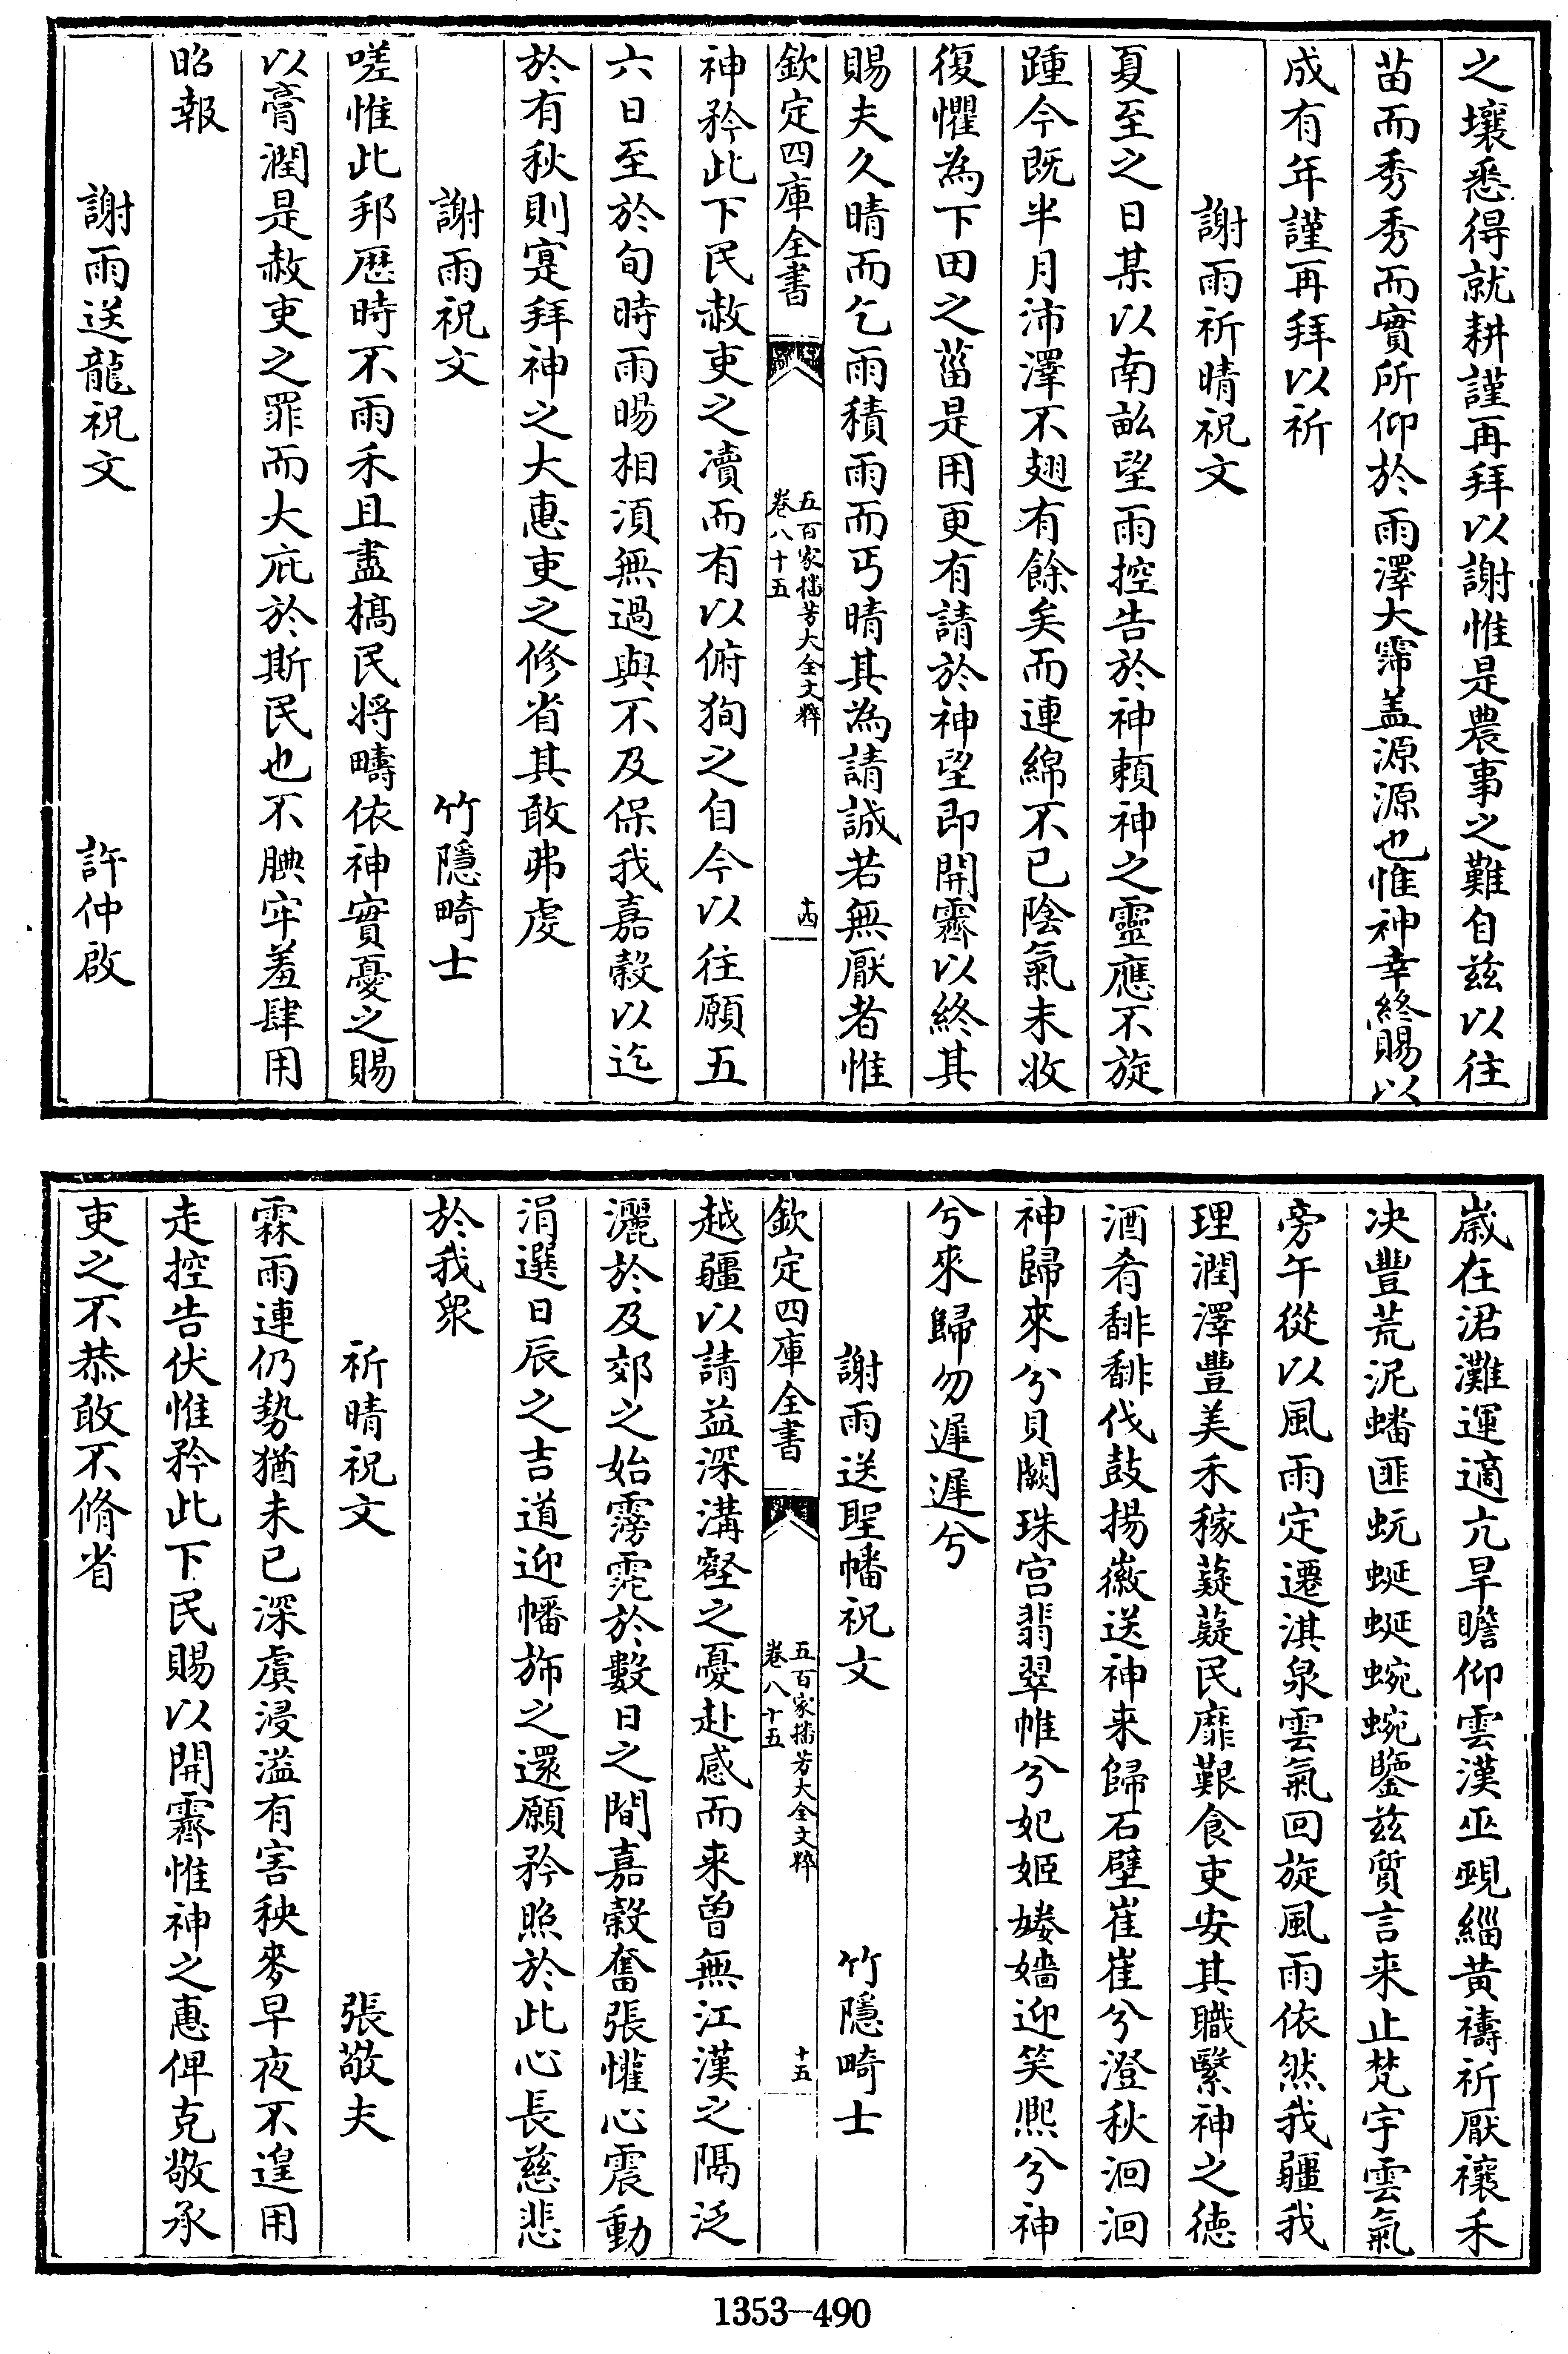 之壤悉得就耕謹再拜以謝惟是農事之難自兹以往
苗而秀秀而實所仰於雨澤大霈盖源源也惟神幸終賜以
成有年謹再拜以祈
謝雨祈晴祝文
夏至之日某以南畝望雨控告於神頼神之靈應不旋
踵今既半月沛澤不翅有餘矣而連綿不已陰氣未收
復懼為下田之菑是用更有請於神望即開霽以終其
賜夫久晴而乞雨積雨而丐晴其為請誠若無厭者惟
欽定四庫全書
五百家播芳大全文粹
卷八十五
十四
神矜此下民赦吏之瀆而有以俯狥之自今以往願五
六日至於旬時雨暘相湏無過與不及保我嘉穀以迄
於有秋則寔拜神之大惠吏之修省其敢弗虔
謝雨祝文
竹隱畸士
嗟惟此邦厯時不雨禾且盡槁民将疇依神實憂之賜
以膏潤是赦吏之罪而大庇於斯民也不腆牢羞肆用
昭報
謝雨送龍祝文
許仲啟
嵗在涒灘運適亢旱瞻仰雲漢巫覡緇黄禱祈厭禳禾
决豐荒泥蟠匪蚖蜒蜒蜿蜿鑒兹質言来止梵宇雲氣
旁午從以風雨定遷淇泉雲氣回旋風雨依然我疆我
理潤澤豐美禾稼薿薿民靡艱食吏安其職繄神之徳
酒肴馡馡伐鼓揚徽送神来歸石壁崔崔兮澄秋洄洄
神歸來兮貝闕珠宫翡翠帷兮妃姬嫔嬙迎笑熈兮神
兮來歸勿遲遲兮
謝雨送聖幡祝文
竹隱畸士
欽定四庫全書
五百家播芳大全文粹
卷八十五
十五
越疆以請益深溝壑之憂赴感而来曽無江漢之隔泛
灑於及郊之始霶霓於數日之間嘉穀奮張懽心震動
涓選日辰之吉道迎幡斾之還願矜照於此心長慈悲
於我衆
祈晴祝文
張敬夫
霖雨連仍勢猶未已深虞浸溢有害秧麥早夜不遑用
走控告伏惟矜此下民賜以開霽惟神之惠俾克敬承
吏之不恭敢不脩省
1353—490